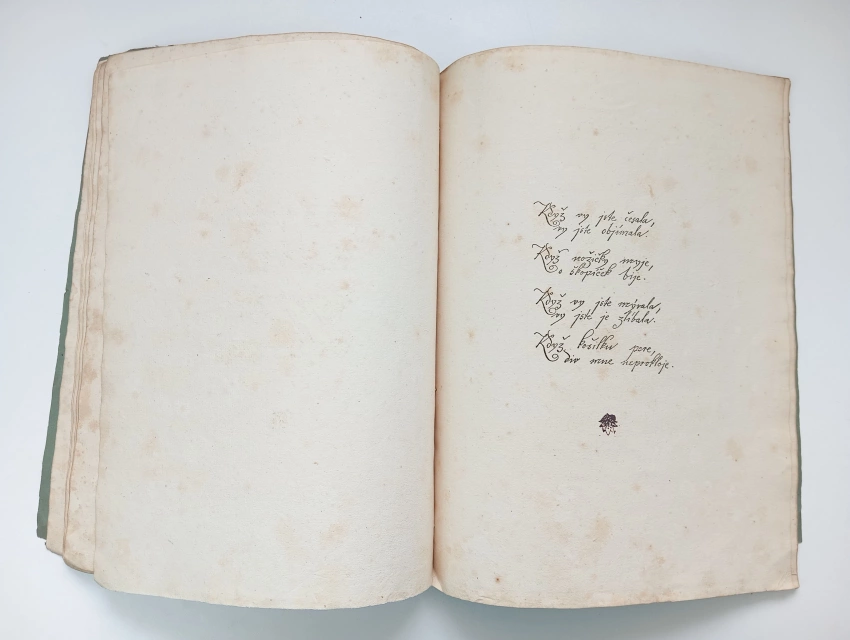 Když vy jste česala,
vy jste objímala.
Když nožičky myje,
o škopíček bije.
Když vy jste mývala,
vy jste je zlíbala.
Když košilku pere,
div mne neprokleje.